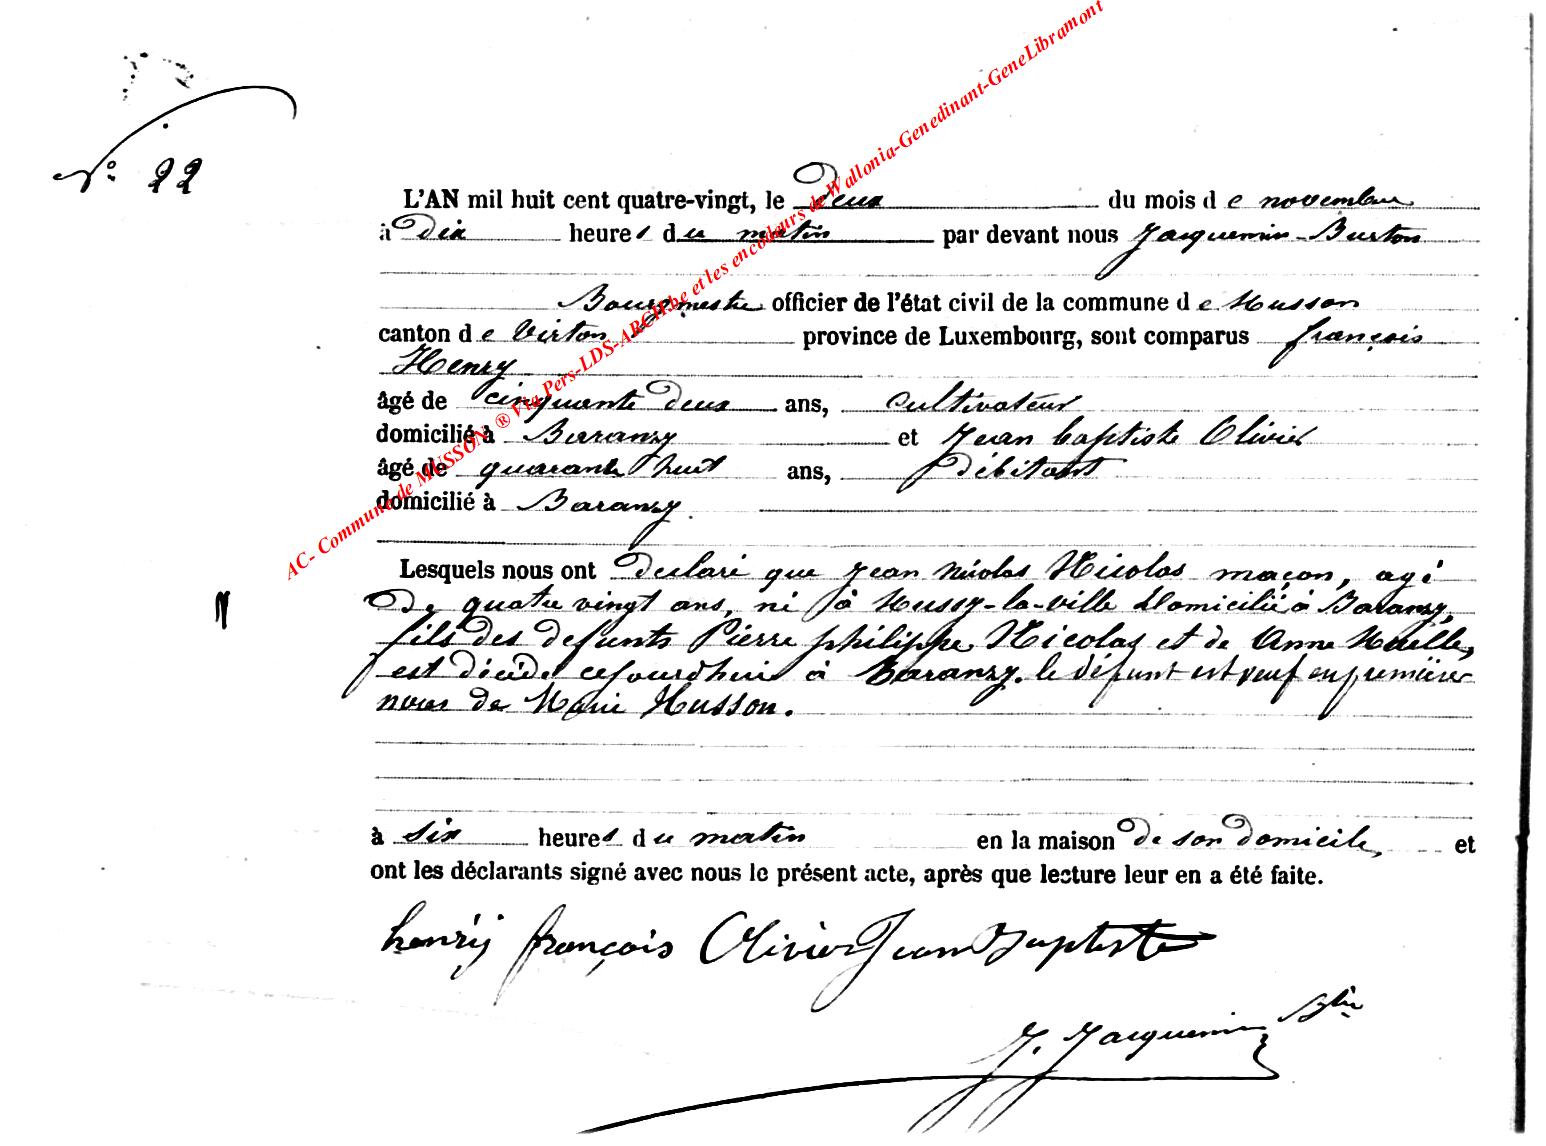 N° 22
L'AN mil huit cent quatre-vingt, le deux du mois de novembre
à dix heures du matin par devant nous Jacquemin-Burton
Bourgmestre officier de l'état civil de la commune de Musson
canton de Virton province de Luxembourg, sont comparus françois
Henry
âgé de cinquante deux ans, cultivateur
domicilié à Baranzy et Jean baptiste Olivier
âgé de quarante huit ans, débitant
domicilié à Baranzy
Lesquels nous ont declaré que Jean Nicolas Nicolas maçon, agé
de quatre vingt ans, né à Mussy-la-ville domicilié à Baranzy,
fils des defunts Pierre philippe Nicolas et de Anne
est décédé cejourdhui à Baranzy. le défunt est veuf en premières
noces de Marie Husson.
à six heures du matin en la maison de son domicile, et
ont les déclarants signé avec nous le présent acte, après que lecture leur en a été faite.
henry françois Olivier Jean Baptiste
J. Jacquemin Btin
AC- Commune de MUSSON ® Via Pers-LDS-ARCH.be et les encodeurs de Wallonia-Genedinant-GeneLibramont